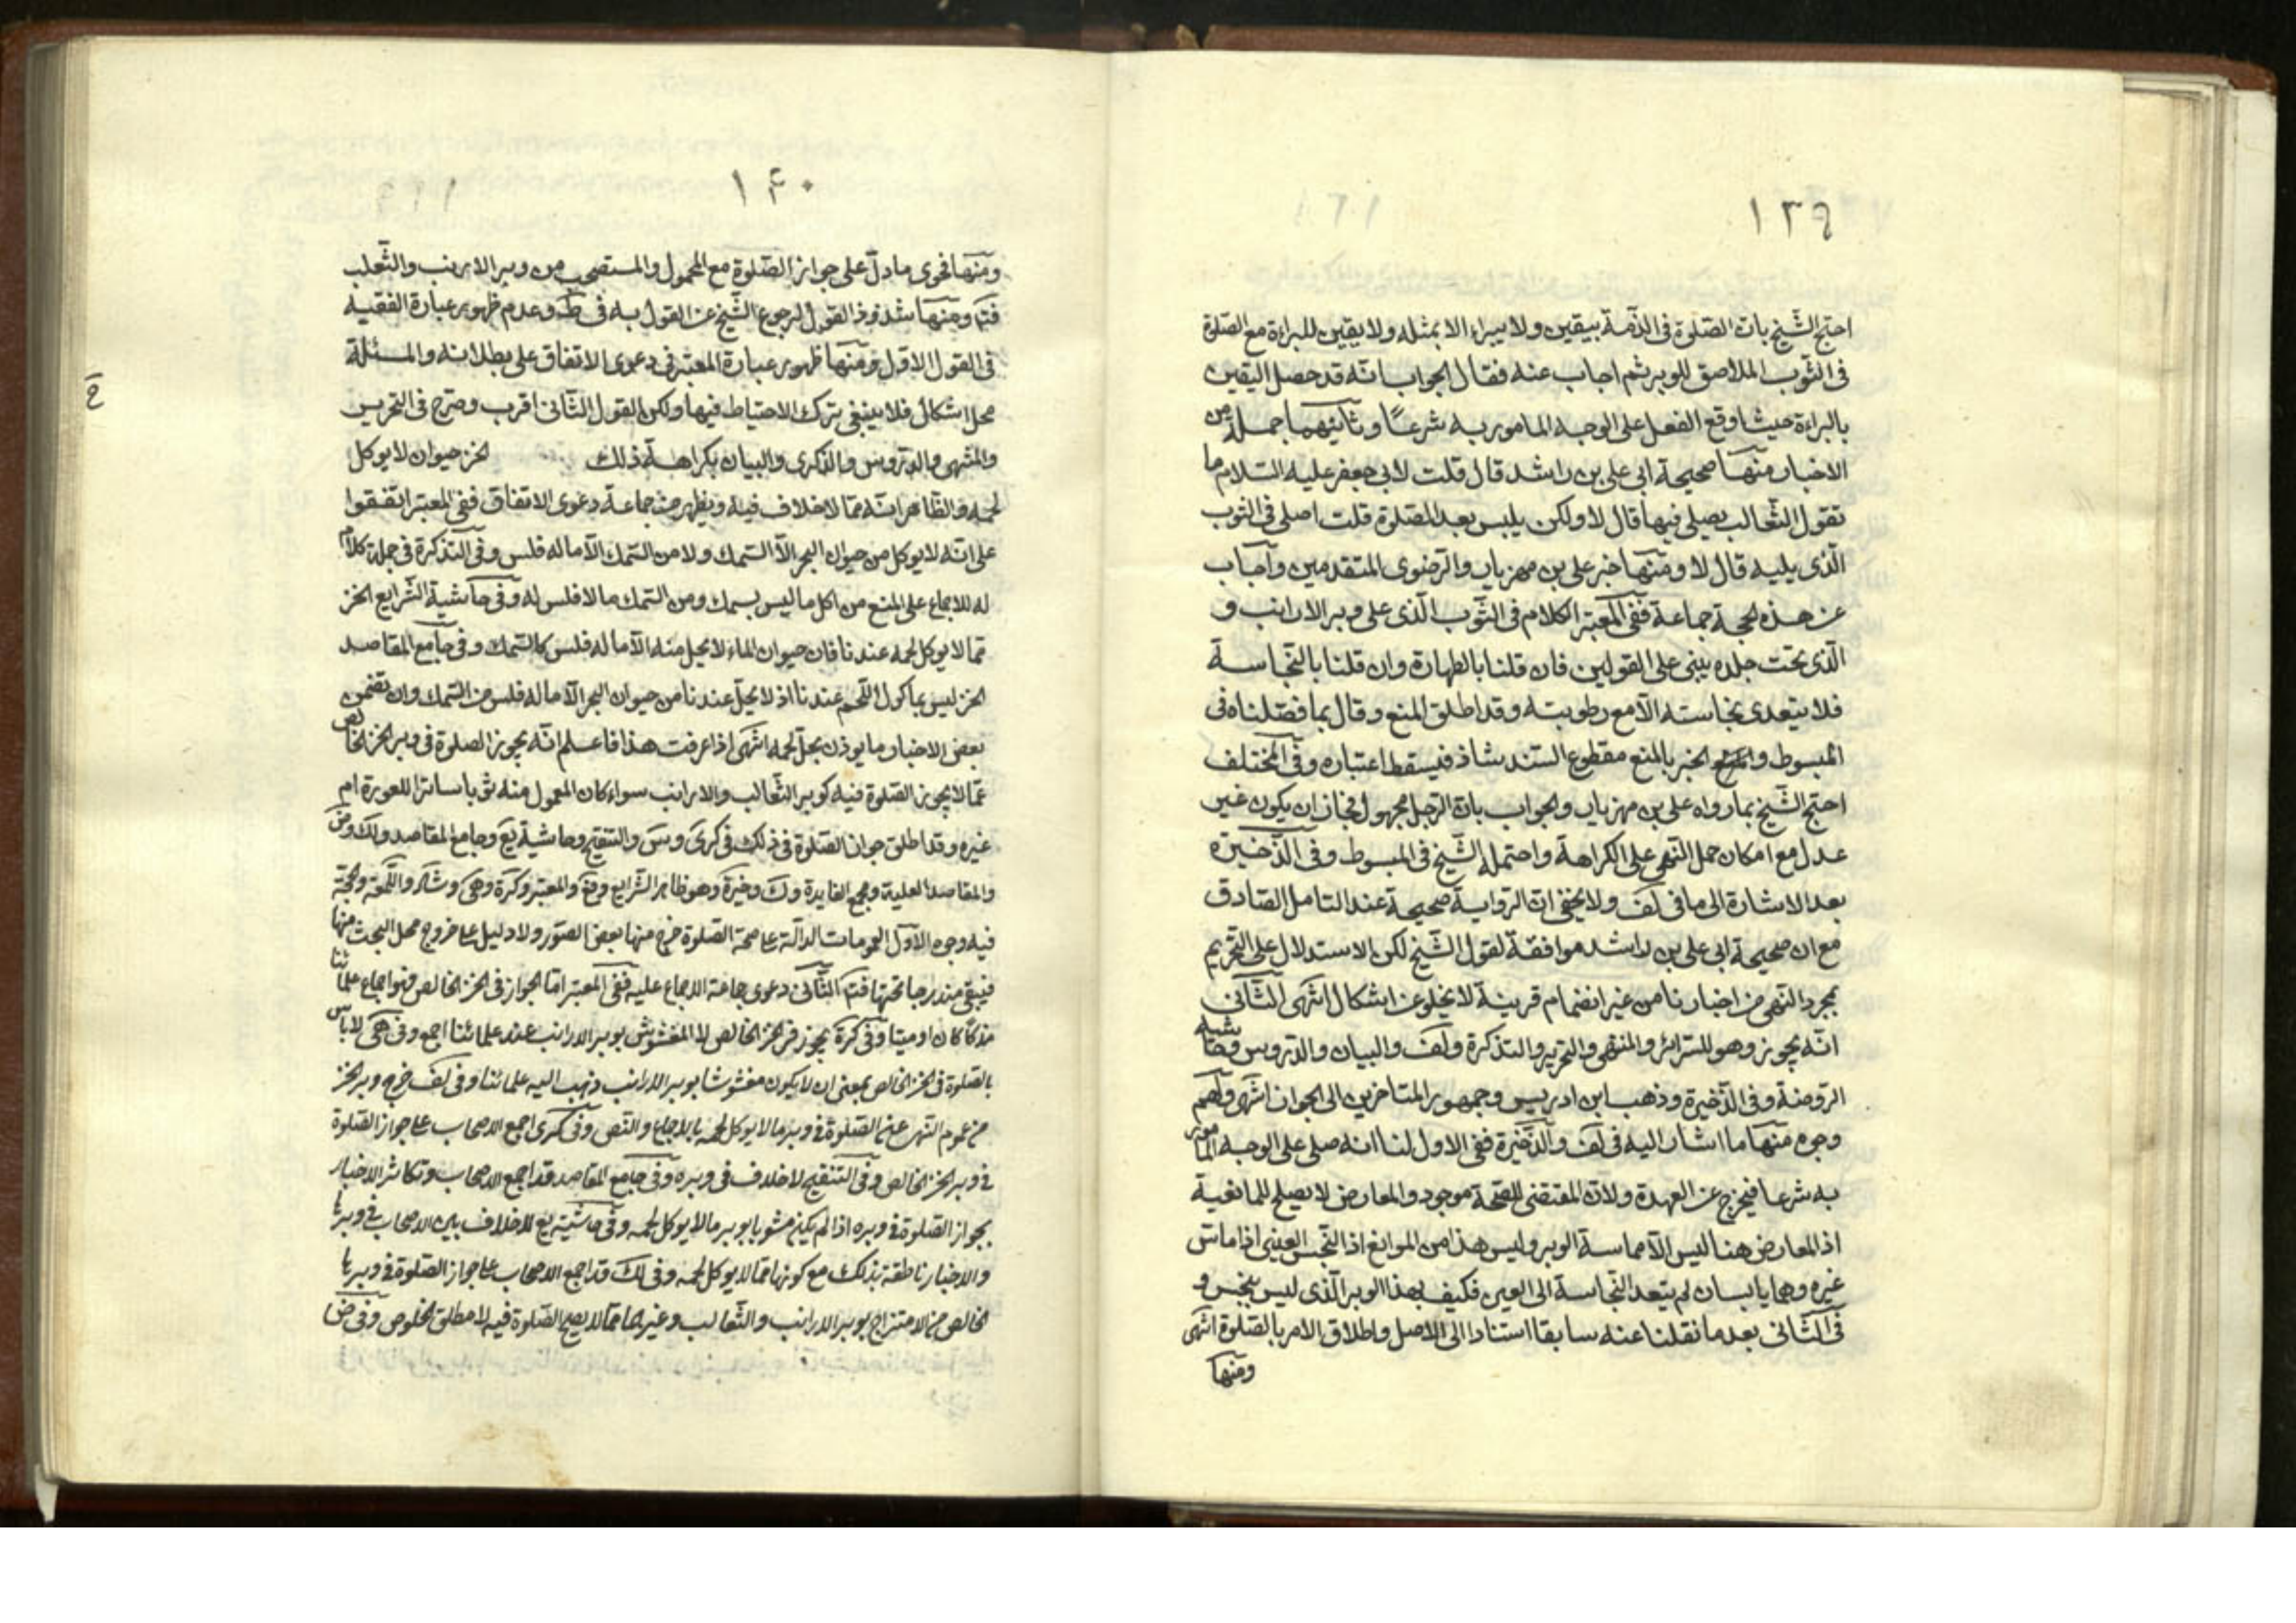 ١٣٩
احتج الشيخ بان الصلوة فى الذمة بيقين ولا يبراء الا بمثله ولا يقين للبراءة مع الصلوة
فى الثوب الملاصق للوبر ثم اجاب عنه فقال الجواب انّه قد حصل اليقين
بالبراءة حيث اوقع الفعل على الوجه المامور به شرعًا وثانيهما جملة من
الاخبار منها صحيحة ابى على بن راشد قال قلت لابى جعفر عليه السّلام ما
تقول الثعالب يصلى فيها قال لا ولكن يلبس بعد الصلوة قلت اصلى فى الثوب
الّذى يليه قال لا ومنها خبر على بن مهزيار والرضوى المتقدمين واجاب
عن هذه الحجة جماعة ففى المعتبر الكلام فى الثّوب الّذى على وبر الارانب و
الّذى تحت جلده يبنى على القولين فان قلنا بالطهارة وان قلنا بالنّجاسة
فلا يتعدى نجاسته الّا مع رطوبته وقد اطلق المنع وقال بما فصّلناه فى
المبسوط و الخبر بالمنع مقطوع السّند شاذ فيسقط اعتباره وفى المختلف
احتج الشّيخ بما رواه على بن مهزيار والجواب بان الرّجل مجهول فجاز ان يكون غير
عدل مع امكان حمل النّهى على الكراهة واحتمله الشّيخ فى المبسوط وفى الذّخيرة
بعد الاشارة الى ما فى لف ولا يخفى انّ الرواية صحيحة عند التامل الصّادق
مع ان صحيحة ابى على بن راشد موافقة لقول الشّيخ لكن الاستدلال على التحريم
بمجرد النّهى فى اخبارنا من غير انضمام قرينة لا يخلو عن اشكال انتهى الثّانى
انّه يجوز وهو للسّرائر والمنتهى والتحرير والتذكرة ولف والبيان والدّروس وحاشية
الرّوضة وفى الذّخيرة وذهب ابن ادريس وجمهور المتاخرين الى الجواز انتهى ولهم
وجوه منها ما اشار اليه فى لف والذّخيرة ففى الاول لنا انه صلى على الوجه المامور
به شرعا فيخرج عن العهدة ولان المقتضى للصّحة موجود والمعارض لا يصلح للمانعية
اذ المعارض هنا ليس الّا مماسة الوبر وليس هذا من الموانع اذ النّجس العينى اذا ماسّ
غيره وهما يابسان لم يتعد النّجاسة الى العين فكيف بهذا الوبر الّذى ليس بنجس و
فى الثّانى بعد ما نقلنا عنه سابقا استنادا الى الاصل واطلاق الامر بالصّلوة انتهى
ومنها
١۴٠
ومنها فحوى ما دلّ على جواز الصّلوة مع المحمول والمستصحب من وبر الارنب والثّعلب
فتم ومنها شذوذ القول لرجوع الشّيخ عن القول به فى ط وعدم ظهور عبارة الفقيه
فى القول الاوّل ومنها ظهور عبارة المعتبر فى دعوى الاتفاق على بطلانه والمسئلة
محل اشكال فلا ينبغى ترك الاحتياط فيها ولكن القول الثّانى اقرب وصرّح فى التحرير
والمنتهى والدّروس والذكرى والبيان بكراهة ذلك الخز حيوان لا يوكل
لحمه والظّاهر انّه ممّا لا خلاف فيه ويظهر من جماعة دعوى الاتفاق ففى المعتبر اتّفقوا
على انّه لا يوكل من حيوان البحر الّا السّمك ولا من السّمك الّا ماله فلس وفى التّذكرة فى جملة كلام
له للاجماع على المنع من اكل ما ليس بسمك ومن السّمك ما لا فلس له وفى حاشية الشّرايع الخز
ممّا لا يوكل لحمه عندنا فان حيوان الماء لا يحل منه الّا ماله فلس كالسّمك وفى جامع المقاصد
الخز ليس بماكول اللّحم عندنا اذ لا يحلّ عندنا من حيوان البحر الّا ماله فلس من السّمك وان تضمن
بعض الاخبار ما يوذن بحلّ لحمه انتهى اذا عرفت هذا فاعلم انّه يجوز الصلوة فى وبر الخز الخالص
عمّا لا يجوز الصّلوة فيه كوبر الثّعالب والارانب سواء كان المعمول منه ثوبا ساترا للعورة ام
غيره وقد اطلق جواز الصّلوة فى ذلك فى كرى وس والتنقيح وحاشية يع وجامع المقاصد ولك وض
والمقاصد العلية ومجمع الفايدة وك وخيرة وهو ظاهر الشّرايع وفع والمعتبر وكرة وهى وشاد واللّمعة والحجّة
فيه وجوه الاوّل العمومات الدالّة على صحة الصّلوة خرج منها بعض الصّور ولا دليل على خروج محل البحث منها
فيبقى مندرجا تحتها فتم الثّانى دعوى جماعة الاجماع عليه ففى المعتبر امّا الجواز فى الخز الخالص فهو اجماع علمائنا
مذكّا كان او ميتا وفى كرة يجوز فى الخز الخالص لا المغشوش بوبر الارانب عند علمائنا اجمع وفى هى لا باس
بالصّلوة فى الخز الخالص بمعنى ان لا يكون مغشوشا بوبر الارانب ذهب اليه علمائنا وفى لف خرج وبر الخز
من عموم النّهى عن الصّلوة فى وبر ما لا يوكل لحمه بالاجماع والنّص وفى كرى اجمع الاصحاب على جواز الصّلوة
فى وبر الخز الخالص وفى التّنقيح لا خلاف فى وبره وفى جامع المقاصد قد اجمع الاصحاب وتكاثر الاخبار
بجواز الصّلوة فى وبره اذا لم يكن مشوبا بوبر ما لا يوكل لحمه وفى حاشية يع لا خلاف بين الاصحاب فى وبرها
والاخبار ناطقة بذلك مع كونها ممّا لا يوكل لحمه وفى لك قد اجمع الاصحاب على جواز الصّلوة فى وبرها
الخالص من الامتزاج بوبر الارانب والثّعالب وغيرهما ممّا لا يصح الصّلوة فيه لا مطلق الخلوص وفى ض